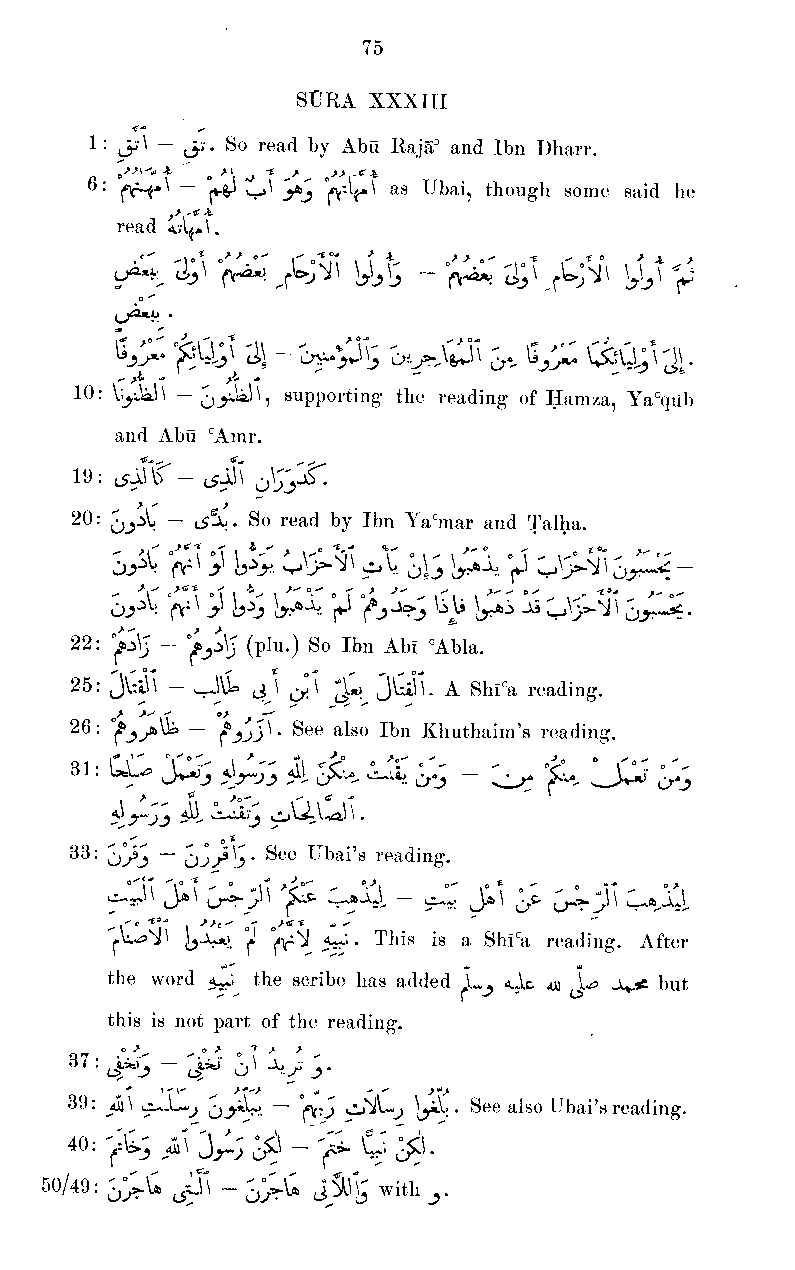 75
SŪRA XXXIII
1: ٱتَّقِ — تَقِ. So read by Abū Rajāʾ and Ibn Dharr.
6: أُمَّهَـٰتُهُمْ — أُمَّهَاتُهُمْ وَهُوَ أَبٌ لَهُمْ as Ubai, though some said he
read أُمَّهَاتُهُ.
وَأُولُوا ٱلْأَرْحَامِ بَعْضُهُمْ أَوْلَىٰ بِبَعْضٍ — ثُمَّ أُولُوا ٱلْأَرْحَامِ أَوْلَىٰ بَعْضُهُمْ
بِبَعْضٍ.
مِنَ ٱلْمُهَاجِرِينَ وَٱلْمُؤْمِنِينَ — إِلَىٰ أَوْلِيَائِكُمْ مَعْرُوفًا إِلَىٰ أَوْلِيَائِكُمَا مَعْرُوفًا.
10: ٱلظُّنُونَا — ٱلظُّنُونَ, supporting the reading of Ḥamza, Yaʿqūb
and Abū ʿAmr.
19: كَٱلَّذِى — كَدَوَرَانِ ٱلَّذِى.
20: بَادُونَ — بُدًّى. So read by Ibn Yaʿmar and Ṭalḥa.
يَحْسَبُونَ ٱلْأَحْزَابَ لَمْ يَذْهَبُوا وَإِنْ يَأْتِ ٱلْأَحْزَابُ يَوَدُّوا لَوْ أَنَّهُمْ بَادُونَ —
يَحْسَبُونَ ٱلْأَحْزَابَ قَدْ ذَهَبُوا فَإِذَا وَجَدُوهُمْ لَمْ يَذْهَبُوا وَدُّوا لَوْ أَنَّهُمْ بَادُونَ.
22: زَادَهُمْ — زَادُوهُمْ (plu.) So Ibn Abī ʿAbla.
25: ٱلْقِتَالَ — ٱلْقِتَالَ بِعَلِيِّ ٱبْنِ أَبِى طَالِبٍ. A Shīʿa reading.
26: ظَاهَرُوهُمْ — آزَرُوهُمْ. See also Ibn Khuthaim's reading.
31: وَمَنْ يَقْنُتْ مِنْكُنَّ لِلّٰهِ وَرَسُولِهِ وَتَعْمَلْ صَـٰلِحًا — وَمَنْ تَعْمَلْ مِنْكُمْ مِنَ
ٱلصَّالِحَاتِ وَتَقْنُتْ لِلّٰهِ وَرَسُولِهِ.
33: وَقَرْنَ — وَٱقْرِرْنَ. See Ubai's reading.
لِيُذْهِبَ عَنْكُمُ ٱلرِّجْسَ أَهْلَ ٱلْبَيْتِ — لِيُذْهِبَ ٱلرِّجْسَ عَنْ أَهْلِ بَيْتِ
نَبِيِّهِ لِأَنَّهُمْ لَمْ يَعْبُدُوا ٱلْأَصْنَامَ. This is a Shīʿa reading. After
the word نَبِيِّهِ the scribe has added محمد صلّى الله عليه وسلّم but
this is not part of the reading.
37: وَتُخْفِى — وَ تُرِيدُ أَنْ تُخْفِىَ.
39: يُبَلِّغُونَ رِسَـٰلَـٰتِ ٱللّٰهِ — بَلَّغُوا رِسَالَاتِ رَبِّهِمْ. See also Ubai's reading.
40: لَكِنْ رَسُولَ ٱللّٰهِ وَخَاتَمَ — لَكِنْ نَبِيًّا خَتَمَ.
50/49: ٱلَّـٰتِى هَاجَرْنَ — وَٱللَّاتِى هَاجَرْنَ with و.